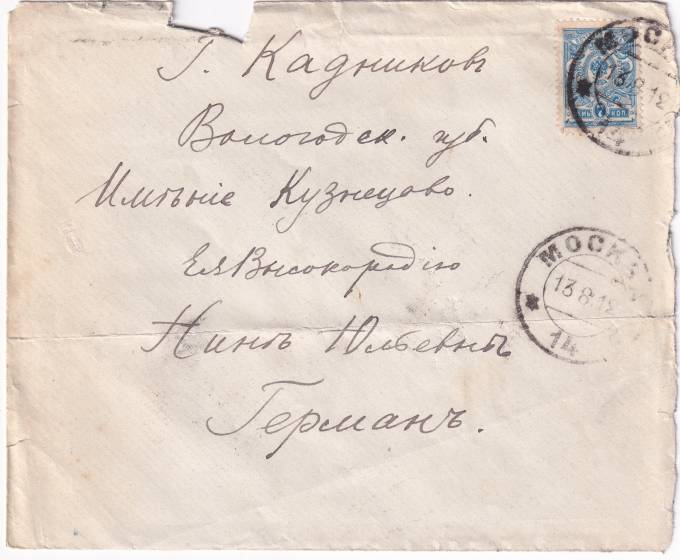 Г. Кадниковъ
Вологодск. губ.
Имѣніе Кузнецово.
Ея Высокородію
Нинѣ Юльевнѣ
Германъ.
МОСКВА
13 8 12
14
МОСКВА
13 8 12
14
7 КОП